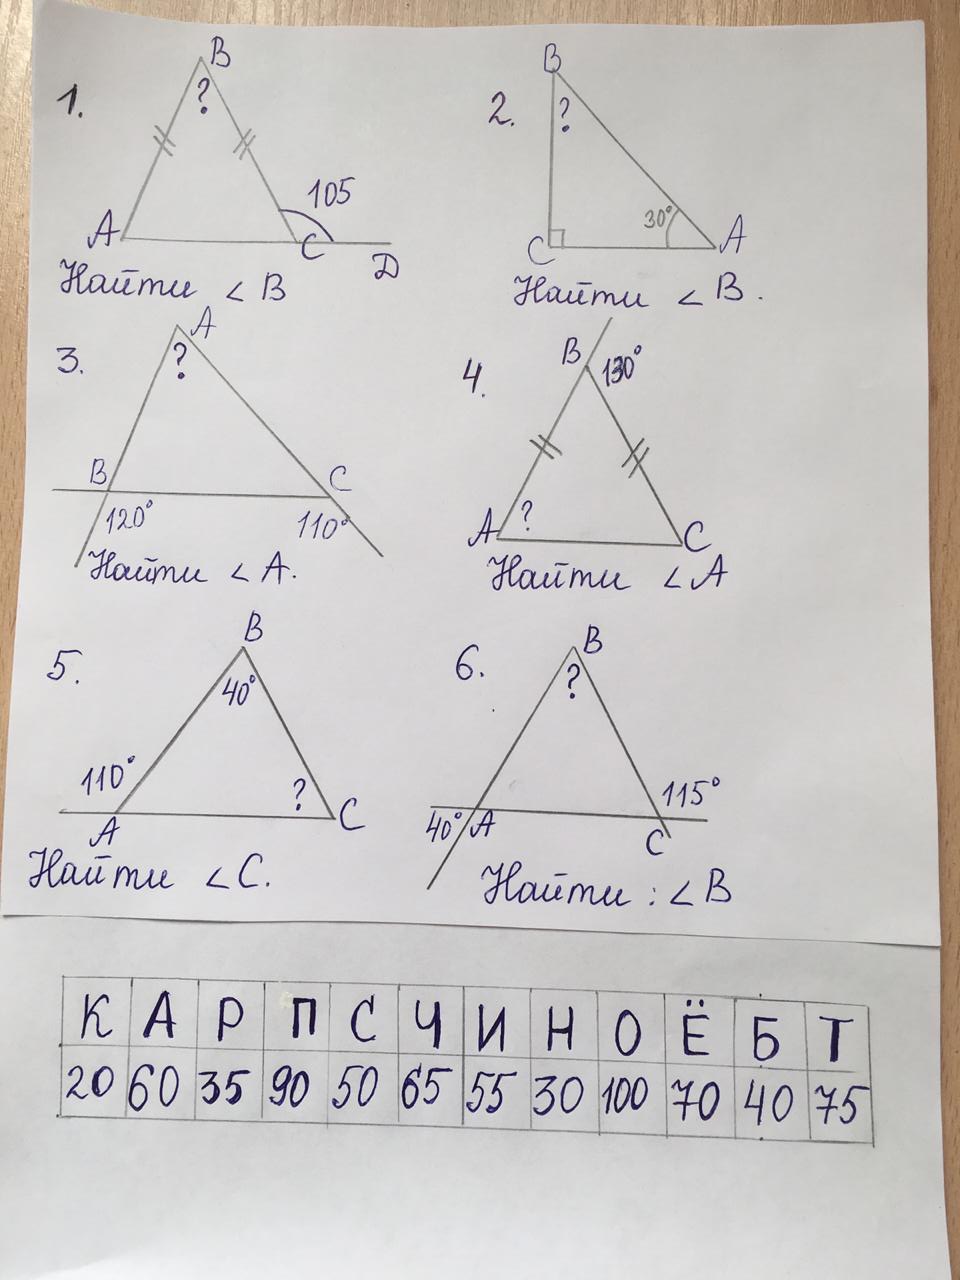 1.
B
?
105
A
C
D
Найти ∠B
2.
B
?
30°
C
A
Найти ∠B.
3.
A
?
B
C
120°
110°
Найти ∠A.
4.
B
130°
A
?
C
Найти ∠A
5.
B
40°
110°
?
A
C
Найти ∠C.
6.
B
?
115°
40°
A
C
Найти: ∠B
К А Р П С Ч И Н О Ё Б Т
20 60 35 90 50 65 55 30 100 70 40 75